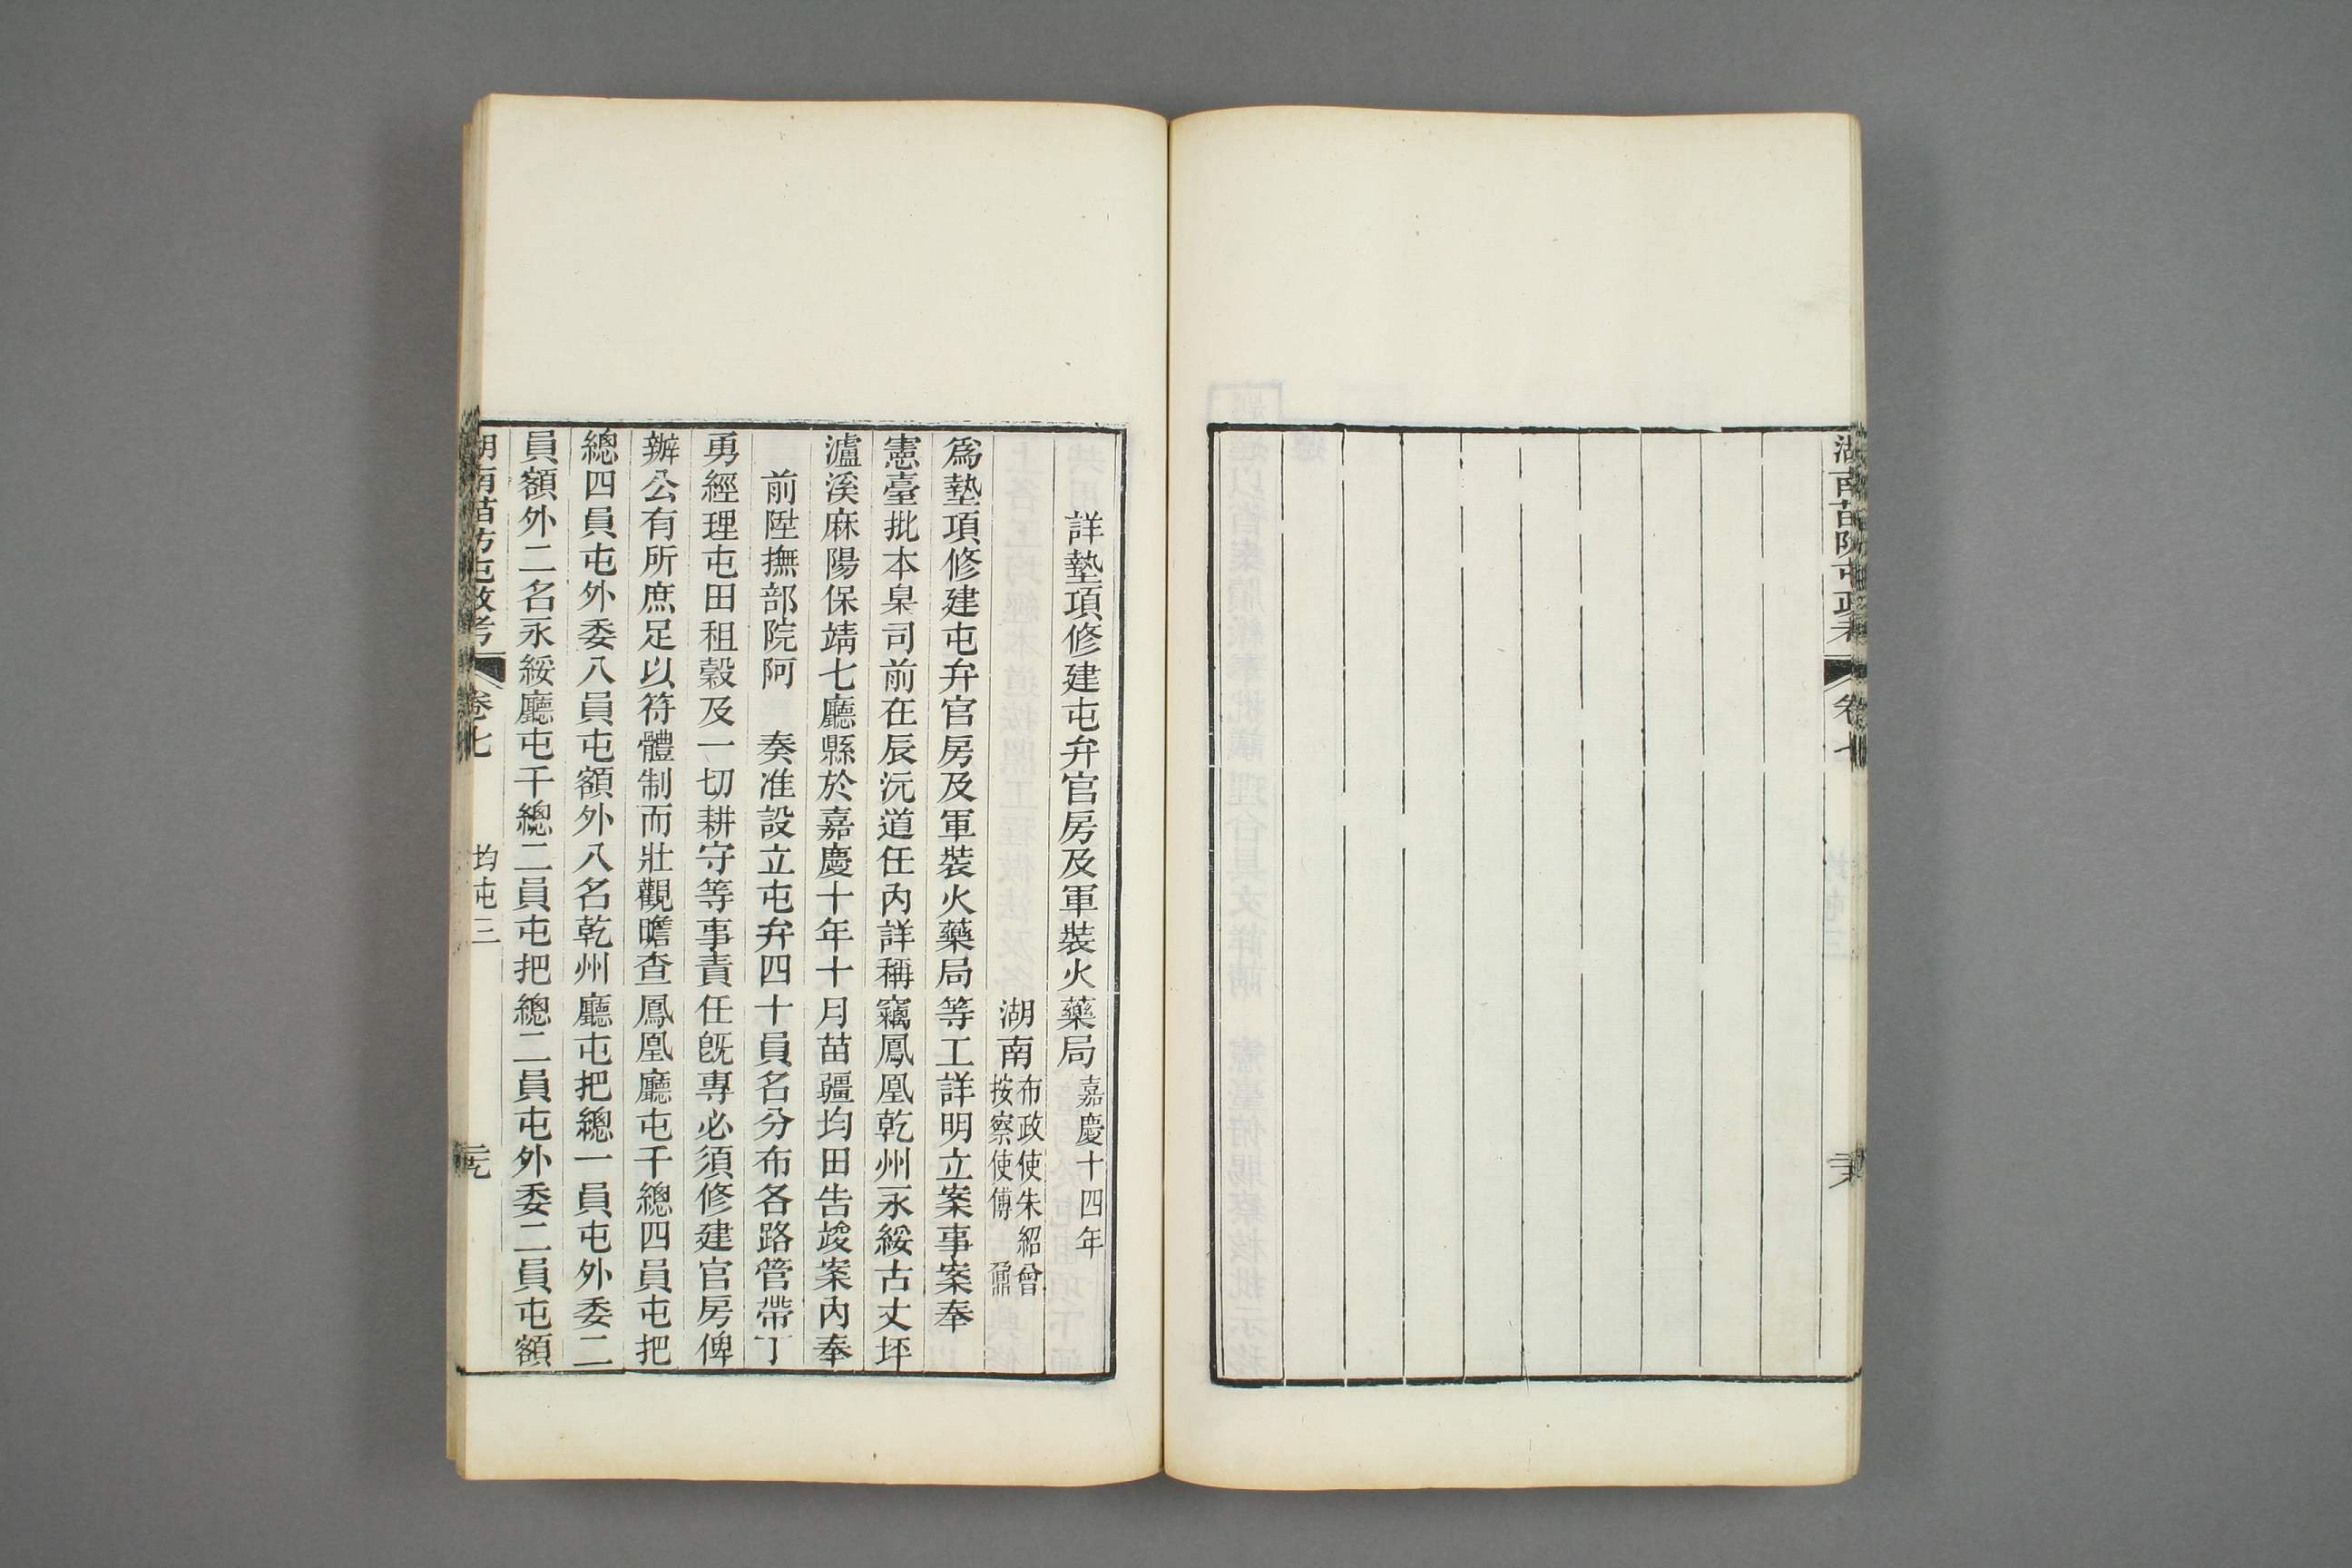 湖南苗防屯政考 卷七 
詳墊項修建屯弁官房及軍裝火藥局嘉慶十四年
湖南布政使朱紹曾按察使傅鼐
為墊項修建屯弁官房及軍裝火藥局等工詳明立案事案奉
憲臺批本臬司前在辰沅道任內詳稱竊鳳凰乾州永綏古丈坪
瀘溪麻陽保靖七廳縣於嘉慶十年十月苗疆均田告竣案內奉
前陞撫部院阿　奏准設立屯弁四十員名分布各路管帶丁
勇經理屯田租穀及一切耕守等事責任旣專必須修建官房俾
辦公有所庶足以符體制而壯觀瞻查鳳凰廳屯千總四員屯把
總四員屯外委八員屯額外八名乾州廳屯把總一員屯外委二
員額外二名永綏廳屯千總二員屯把總二員屯外委二員屯額
湖南苗防屯政考 卷七 均屯三 元